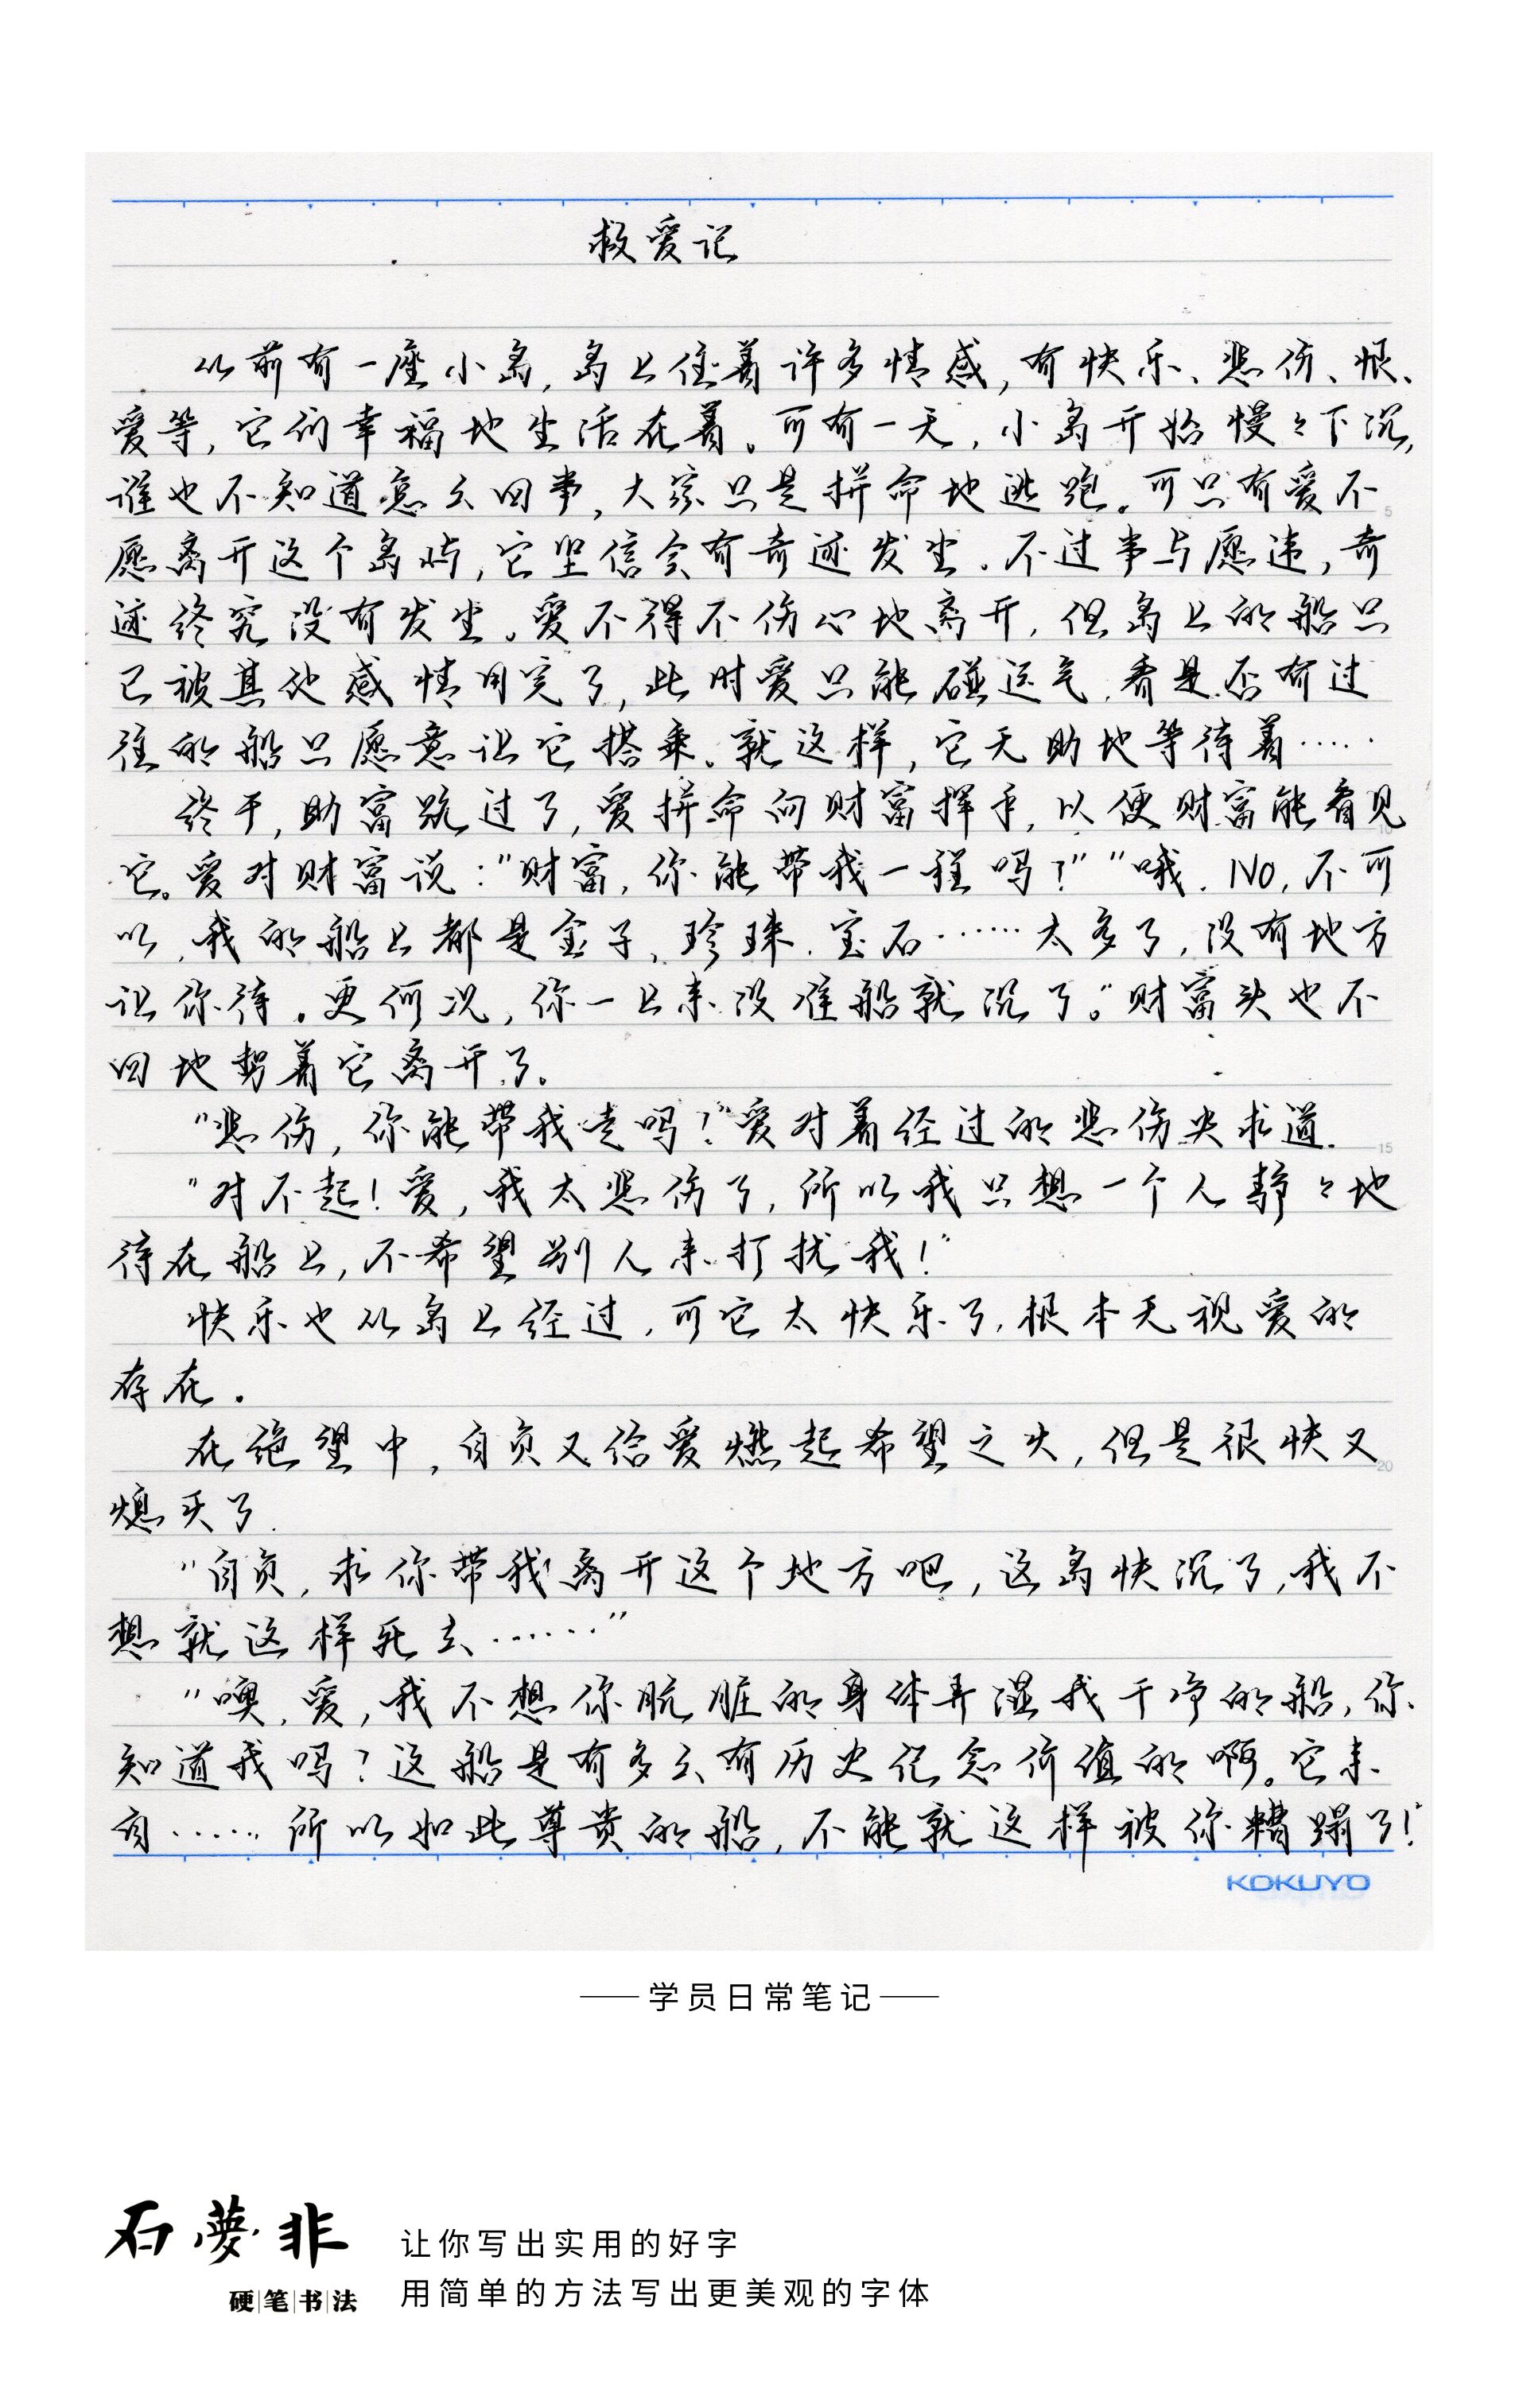 救爱记
从前有一座小岛,岛上住着许多情感,有快乐、悲伤、恨、
爱等,它们幸福地生活在着。可有一天,小岛开始慢々下沉,
谁也不知道怎么回事,大家只是拼命地逃跑。可只有爱不
愿离开这个岛屿,它坚信会有奇迹发生。不过事与愿违,奇
迹终究没有发生。爱不得不伤心地离开,但岛上的船只
已被其他感情用完了,此时爱只能碰运气,看是否有过
往的船只愿意让它搭乘。就这样,它无助地等待着……
终于,助富跑过了,爱拼命向财富挥手,以便财富能看见
它。爱对财富说:"财富,你能带我一程吗?""哦,NO,不可
以,我的船上都是金子、珍珠、宝石……太多了,没有地方
让你待。更何况,你一上来没准船就沉了。"财富头也不
回地努着它离开了。
"悲伤,你能带我走吗?"爱对着经过的悲伤央求道.
"对不起!爱,我太悲伤了,所以我只想一个人静々地
待在船上,不希望别人来打扰我!"
快乐也从岛上经过,可它太快乐了,根本无视爱的
存在。
在绝望中,自负又给爱燃起希望之火,但是很快又
熄灭了.
"自负,求你带我离开这个地方吧,这岛快沉了,我不
想就这样死去……"
"噢,爱,我不想你肮脏的身体弄湿我干净的船,你
知道我吗?这船是有多么有历史纪念价值的啊。它来
自……所以如此尊贵的船,不能就这样被你糟蹋了!"
KOKUYO
学员日常笔记
石夢非
硬笔书法
让你写出实用的好字
用简单的方法写出更美观的字体